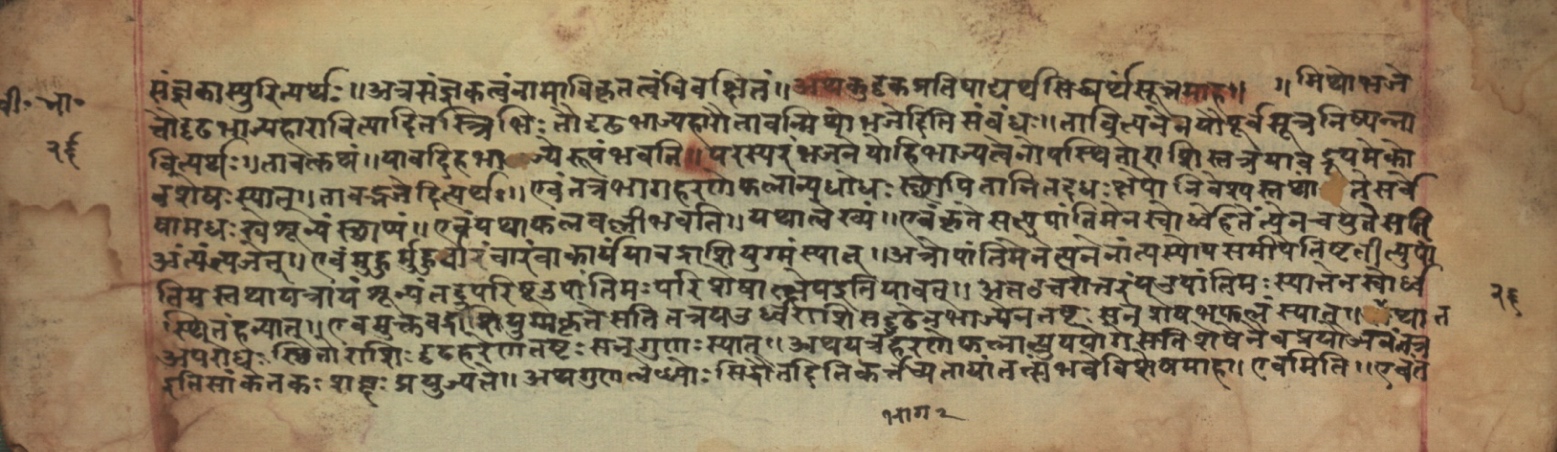 वी॰ भा॰
२६
संज्ञकास्युरित्यर्थः॥ अत्रसंज्ञकत्वंनामाविकृतत्वंविवक्षितं॥ अथकुट्टकप्रतिपाद्यर्थसिद्ध्यर्थंसूत्रमाह॥ ॥मिथोभजे
त्तौदृढभाज्यहारावित्यादितस्त्रिभिः तौदृढभाज्यहारौतावन्मिथोभजेदितिसंबंधः॥ तावित्यनेनयौपूर्वसूत्रनिष्पन्ना
वित्यर्थः॥ तावत्कथं॥ यावदिहभाज्येरूपंभवति॥ परस्परंभजनेयोहिभाज्यत्वेनोपस्थितोराशिस्तत्रयावद्रूपमेको
वशेषःस्यात्॥ तावद्भजेदित्यर्थः॥ एवंतत्रभागहरणेफलान्यधोधःस्छापितानितदधःक्षेपोनिवेश्यस्तथां ते सर्वे
षामधःखंशून्यंस्छाप्यं॥ एवंयथाफलवल्लीभवति॥ यथालेख्यं॥ एवंकृतेसत्युपांतिमेनस्वोर्ध्वेहतेंत्येनचयुतेसति
अंत्यंत्यजेत्॥ एवंमुहुर्मुहुर्वारंवारंवाकार्यंयावद्राशियुग्मंस्यात्॥ अत्रोपांतिमेनेत्यनेनांत्यस्योपसमीपेतिष्टतीत्युपां
तिमस्तथाचात्रांत्यंशून्यंतदुपरिष्टउपांतिमःपरिशेषात्क्षेपइतियावत्॥ अतउत्तरोत्तरंयउपांतिमःस्यात्तेनस्वोर्ध्वे
स्थितंहन्यात्॥ एवमुक्तवद्राशियुग्मेकृतेसतितत्रयऊर्ध्वराशिःसदृढेनभाज्येनतष्टःसन्शेषंफलंस्यात्॥ तथात
अपरोधःस्थितोराशिःदृढहरेणतष्टःसन्गुणःस्यात्॥ अथयत्रहरणेफलानुपयोगेसतिशेषेनैवप्रयोजनंतत्र
इतिसांकेतकःशब्दःप्रयुज्यते॥ अथगुणलब्ध्योःसिद्धौतदितिकर्त्तव्यतायांतत्संभवेविशेषमाह॥ एवमिति॥ एवंत
२६
भाग २